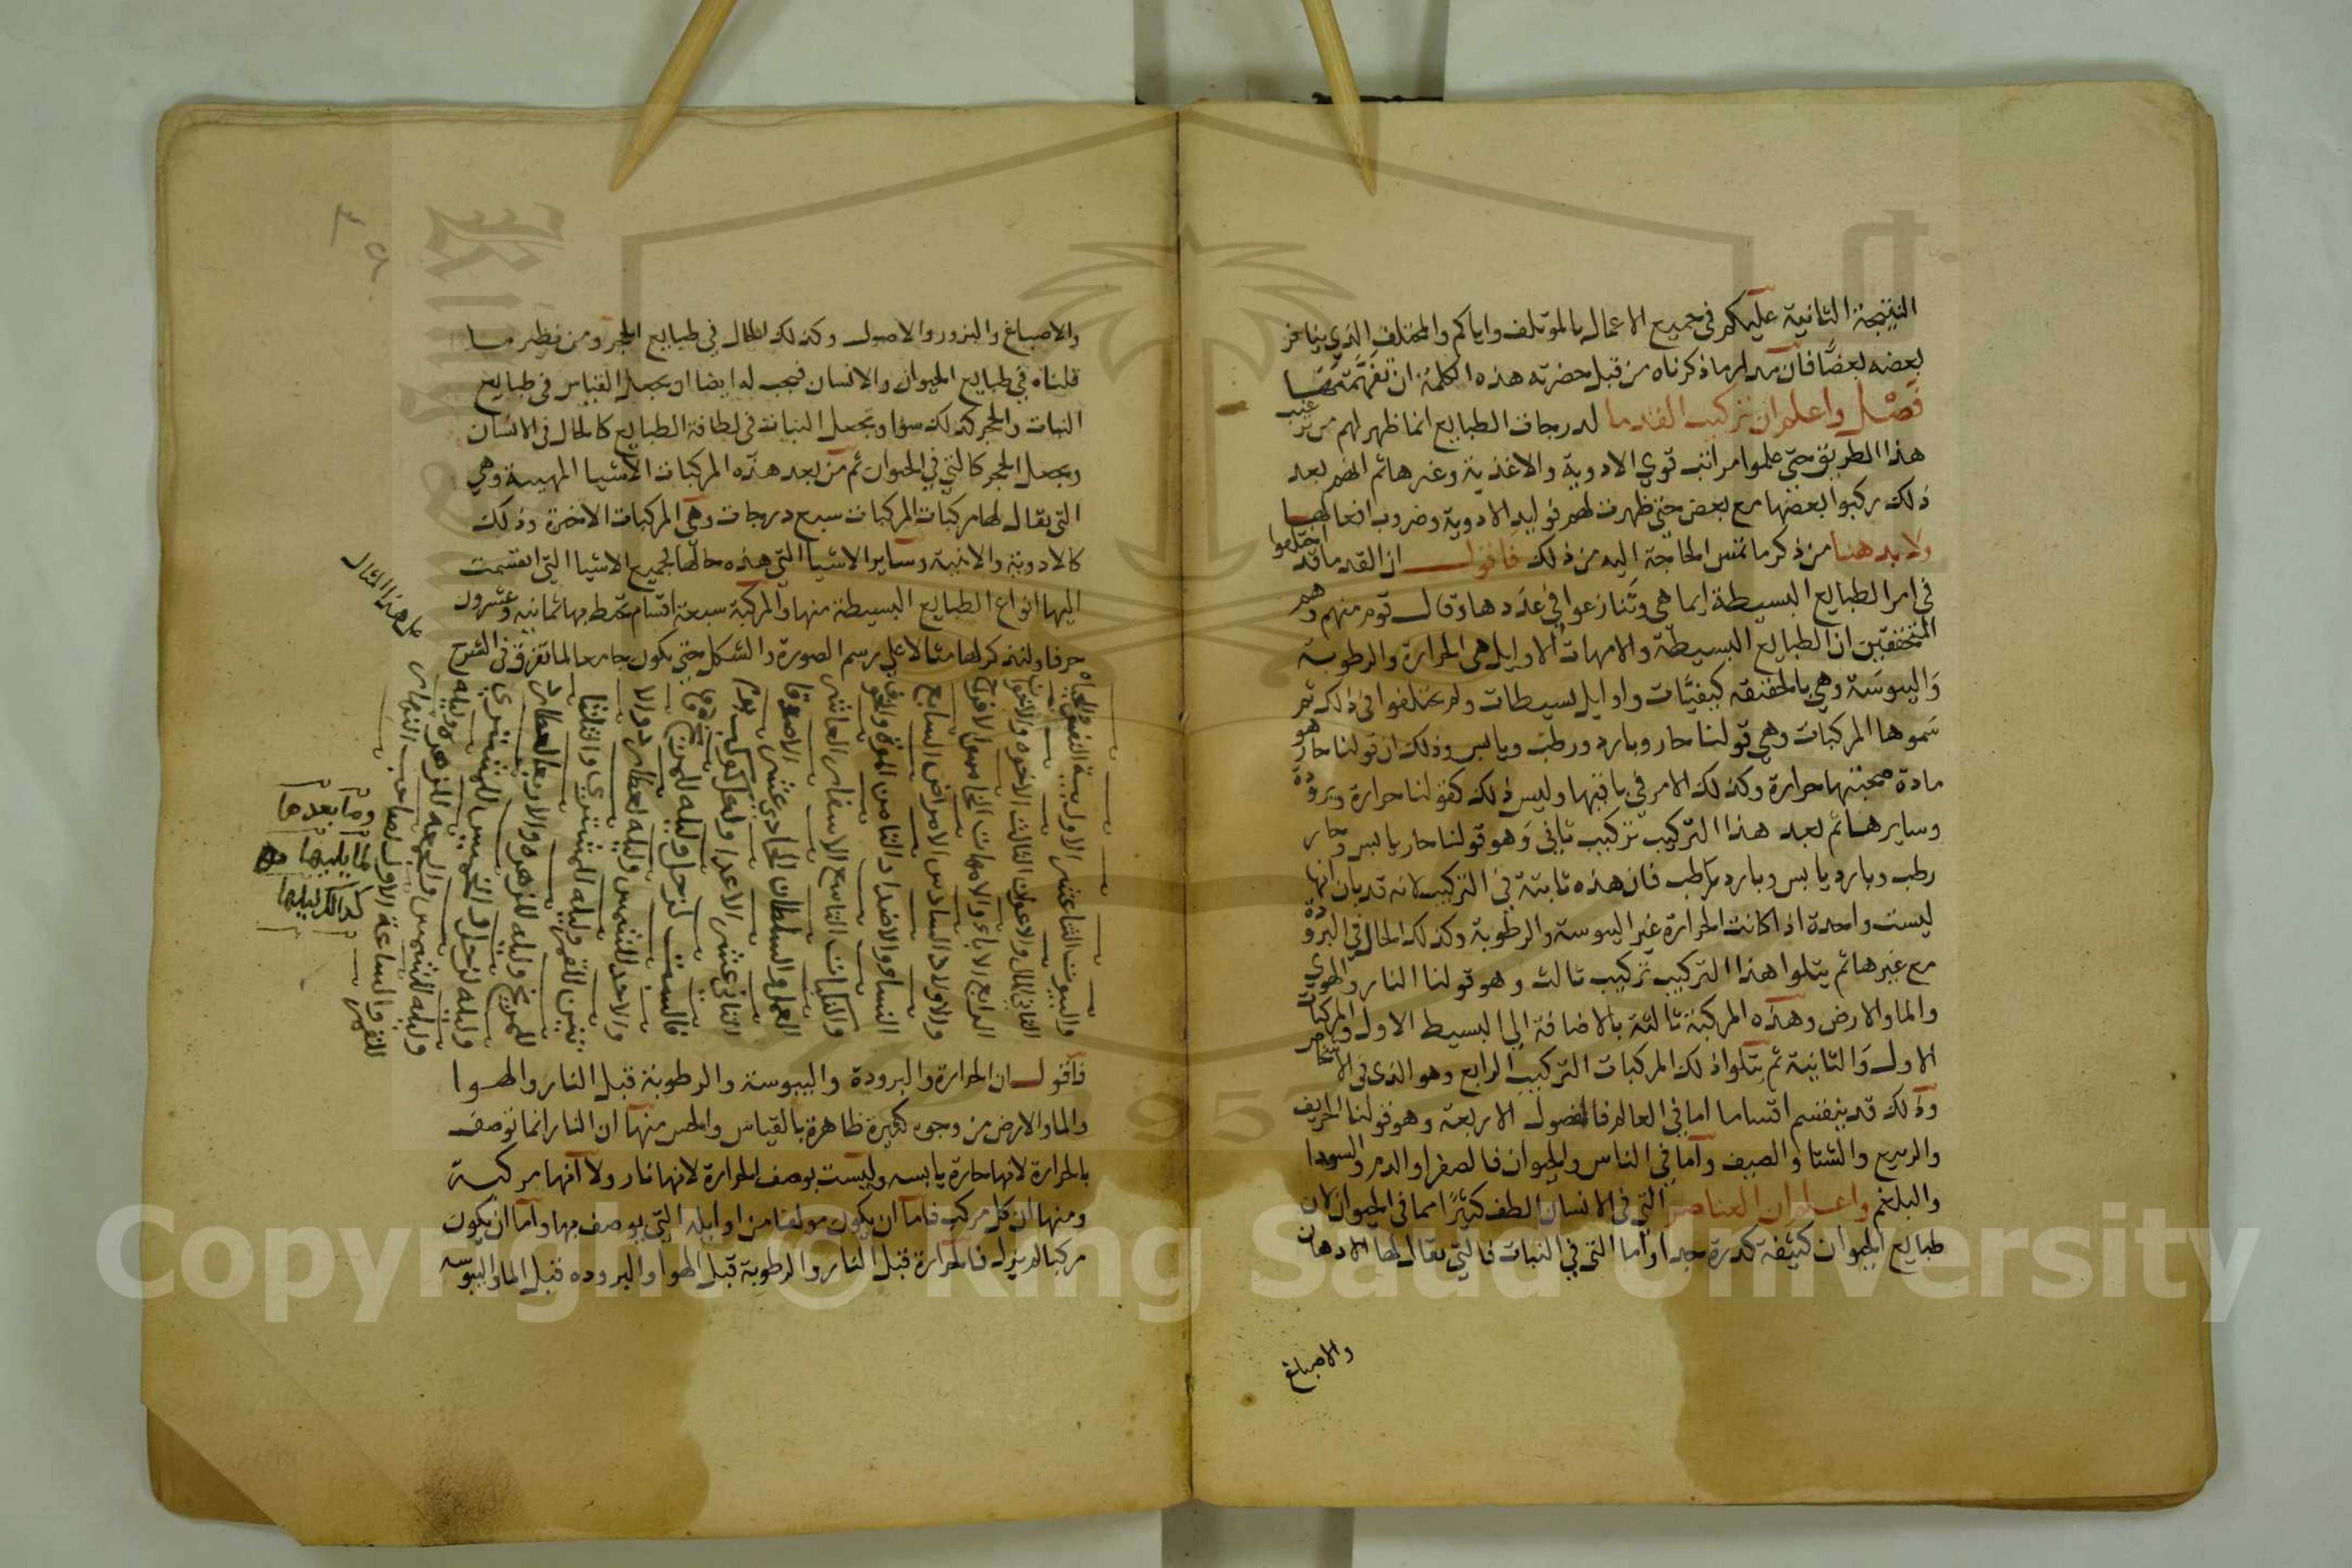 النتيجة الثانية عليكم في جميع الاعمال بالموتلف واياكم والمختلف الذي ينافر
بعضه بعضًا فان مدار ما ذكرناه من قبل حضرته هذه الكلمة ان تفهمتها
فصل واعلم ان تركيب القدما لدرجات الطبايع انما ظهر لهم من ترتيب
هذا الطريق حتى علموا مراتب قوي الادوية والاغذية وغيرها ثم انهم بعد
ذلك ركبوا بعضها مع بعض حتى ظهرت لهم فوايد الادوية وضروب افعالها
ولا بد هنا من ذكر ما تمس الحاجة اليه من ذلك فاقول ان القدما قد اختلفوا
في امر الطبايع البسيطة ايما هي وتنازعوا في عددها وقال قوم منهم وهم
المتحققين ان الطبايع البسيطة والامهات الاوايل هي الحرارة والرطوبة
واليبوسة وهي بالحقيقه كيفيات واوايل بسيطات ولم يختلفوا في ذلك ثم
سموها المركبات وهي قولنا حار وبارد ورطب ويابس وذلك ان قولنا حار هو
مادة صحبتها حرارة وكذلك الامر في باقيها وليس ذلك كقولنا حرارة وبرودة
وسايرها ثم بعد هذا التركيب تركيب ثاني وهو قولنا حار يابس وحار
رطب وبارد يابس وبارد رطب فان هذه ثابتة في التركيب لانه قد بان انها
ليست واحدة اذا كانت الحرارة غير اليبوسة والرطوبة وكذلك الحال في البرودة
مع غيرها ثم يتلوا هذا التركيب تركيب ثالث وهو قولنا النار والهوي
والما والارض وهذه المركبة ثالثة بالاضافة الي البسيط الاول والمركبات
الاول والثانية ثم يتلوا ذلك المركبات التركيب الرابع وهو الذي في الاشخاص
وذلك قد ينقسم اقساما اما في العالم فالفصول الاربعة وهو قولنا الخريف
والربيع والشتا والصيف واما في الناس والحيوان فالصفرا والدم والسودا
والبلغم واعلم ان العناصر التي في الانسان الطف كثيرًا مما في الحيوان لان
طبايع الحيوان كثيفة كدرة جدا واما التي في النبات فالتي يقال لها الادهان
والاصباغ
والاصباغ والبزور والاصول وكذلك الحال في طبايع الحجر ومن نظر ما
قلناه في طبايع الحيوان والانسان فيجب له ايضا ان يجعل القياس في طبايع
النبات والحجر كذلك سوا ويجعل النبات في لطافة الطبايع كالحال في الانسان
ويجعل الحجر كالتي في الحيوان ثم من بعد هذه المركبات الاشيا وهي
التي يقال لها مركبات المركبات سبع درجات وهي المركبات الاخرة وذلك
كالادوية والابنية وساير الاشيا التي هذه حالها لجميع الاشيا التي انقسمت
اليها انواع الطبايع البسيطة منها والمركبة سبعة اقسام تحيط بها ثمانيه وعشرون
حرفا ولنذكر لها مثالا علي رسم الصورة والشكل حتى يكون جامعا لما تفرق في الشرح
على هذا المثال
والبيوت الثناعشر الاول بيت النفس والحياه
الثاني المال والاعوان الثالث الاخوه والاخوات
الرابع الاباء والامهات الخامس الافراح
والاولاد السادس الامراض السابع
النساء والاضداد الثامن الموت والخوف
والنكبات التاسع الاسفار العاشر
العمل والسلطان الحادي عشر الاصدقا
الثاني عشر الاعدا ولكل كوكب يوم
فالسبت لزحل وليله للمريخ
والاحد للشمس وليله لعطارد والا
ثنين للقمر وليله للمشتري والثلثا
للمريخ وليله للزهره والاربعا لعطارد
وليله لزحل والخميس للمشتري
وليله للشمس والجمعه للزهره وليله
للقمر والساعة الاولى لصاحب النهار
وما بعدها
لما يليها
كذلك ليلها
فاقول ان الحرارة والبرودة واليبوسة والرطوبة قبل النار والهوا
والما والارض من وجوه كثيرة ظاهرة بالقياس والحس منها ان النار انما توصف
بالحرارة لانها حارة يابسه وليست بوصف الحرارة لانها نار ولا انها مركبة
ومنها ان كل مركب فاما ان يكون مولفا من اوايله التي يوصف بها واما ان يكون
مركبا لم يزل فالحرارة قبل النار والرطوبة قبل الهوا والبروده قبل الما واليبوسه
Copyright © King Saud University
1957